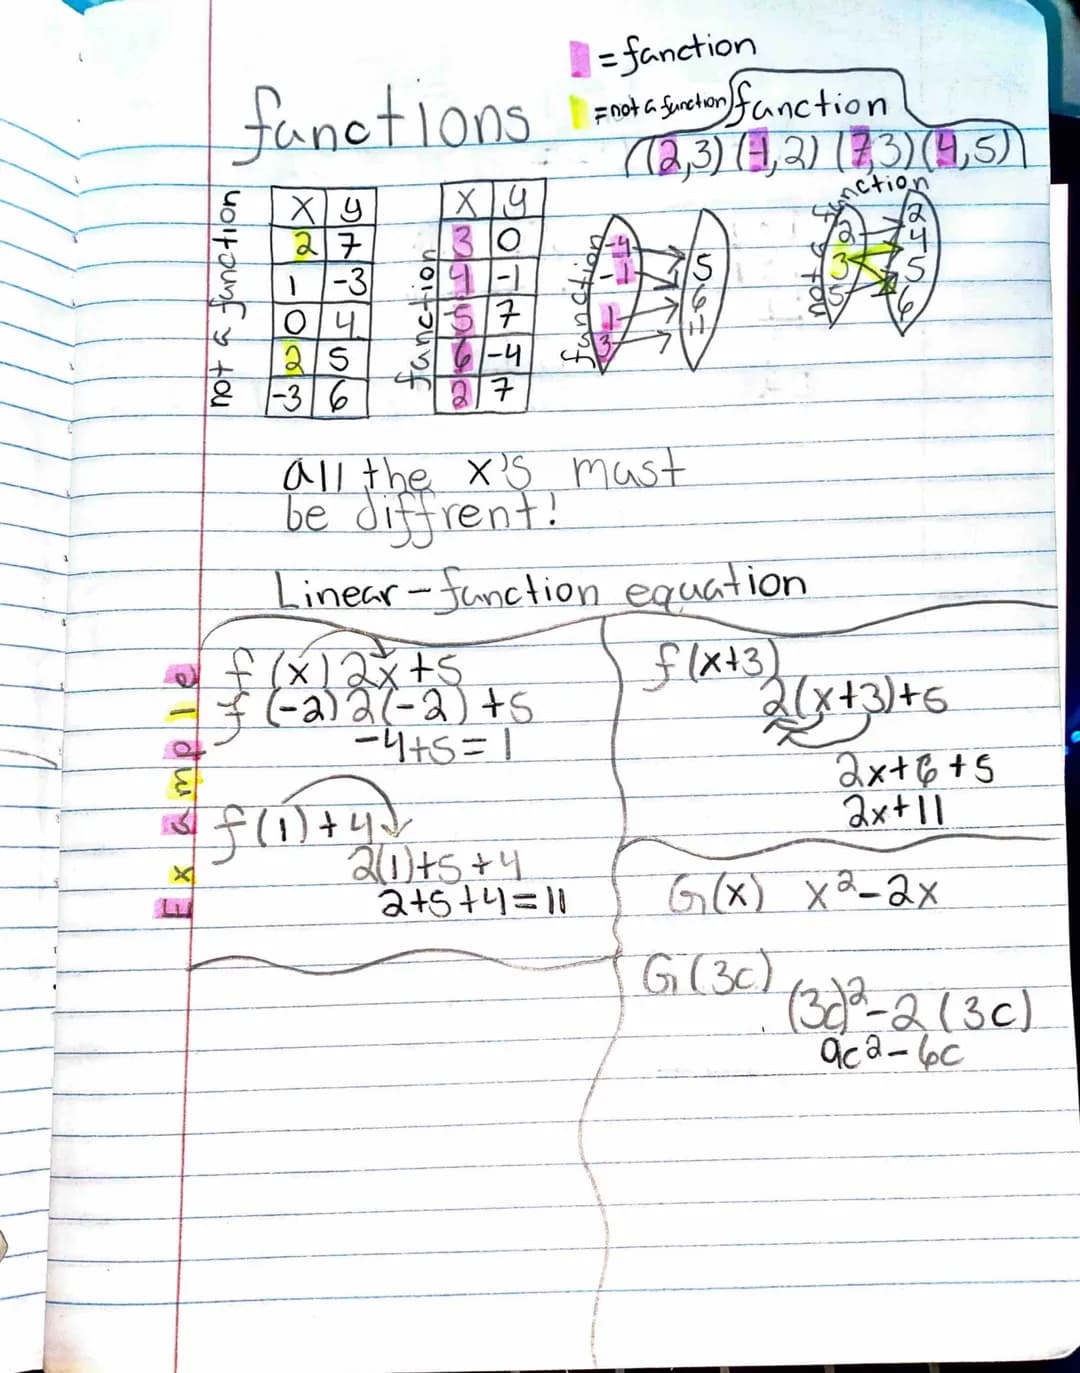 = function
functions
= not a function
function
((2,3) (-1,2) (7,3) (4,5))
not a function
x y
2 7
1 -3
0 4
2 5
-3 6
function
x y
3 0
4 -1
5 7
6 -4
2 7
function
-4
-1
1
3
5
6
not a function
2
3
5
2
4
5
6
all the x's must
be diffrent!
Linear - function equation
Example
f(x) 2x+5
f(-2) 2(-2)+5
-4+5=1
f(1)+4
2(1)+5+4
2+5+4=11
f(x+3)
2(x+3)+5
2x+6+5
2x+11
G(x) x²-2x
G(3c)
(3c)²-2(3c)
9c2-6c